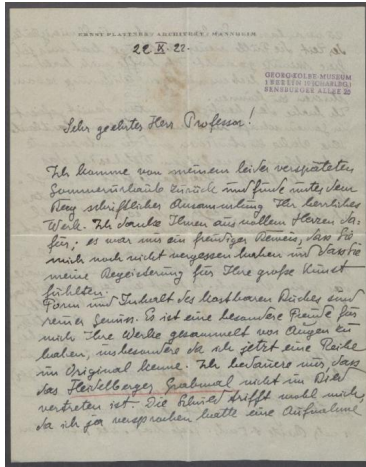 ERNST PLATTNER / ARCHITEKT / MANNHEIM
22 IX. 22.
GEORG KOLBE MUSEUM
1 BERLIN 19 (CHARLBG.)
SENSBURGER ALLEE 25
Sehr geehrter Herr Professor!
Ich komme von meinem leider verspäteten
Sommerurlaube zurück und finde unter dem
Berg schriftlicher Ansammlung Ihr herrliches
Werk. Ich danke Ihnen aus vollem Herzen da-
für; es war mir ein freudiger Beweis, dass Sie
mich noch nicht vergessen haben und dass Sie
meine Begeisterung für Ihre große Kunst
fühlten.
Form und Inhalt des kostbaren Buches sind
reiner Genuss. Es ist eine besondere Freude für
mich Ihre Werke gesammelt vor Augen zu
haben, insbesondere da ich jetzt eine Reihe
im Original kenne. Ich bedaure nur, dass
das Heidelberger Grabmal nicht im Bild
vertreten ist. Die Schuld trifft wohl mich,
da ich ja versprochen hatte eine Aufnahme